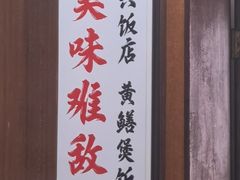 美味难敌
饭店 黄鳝煲饭